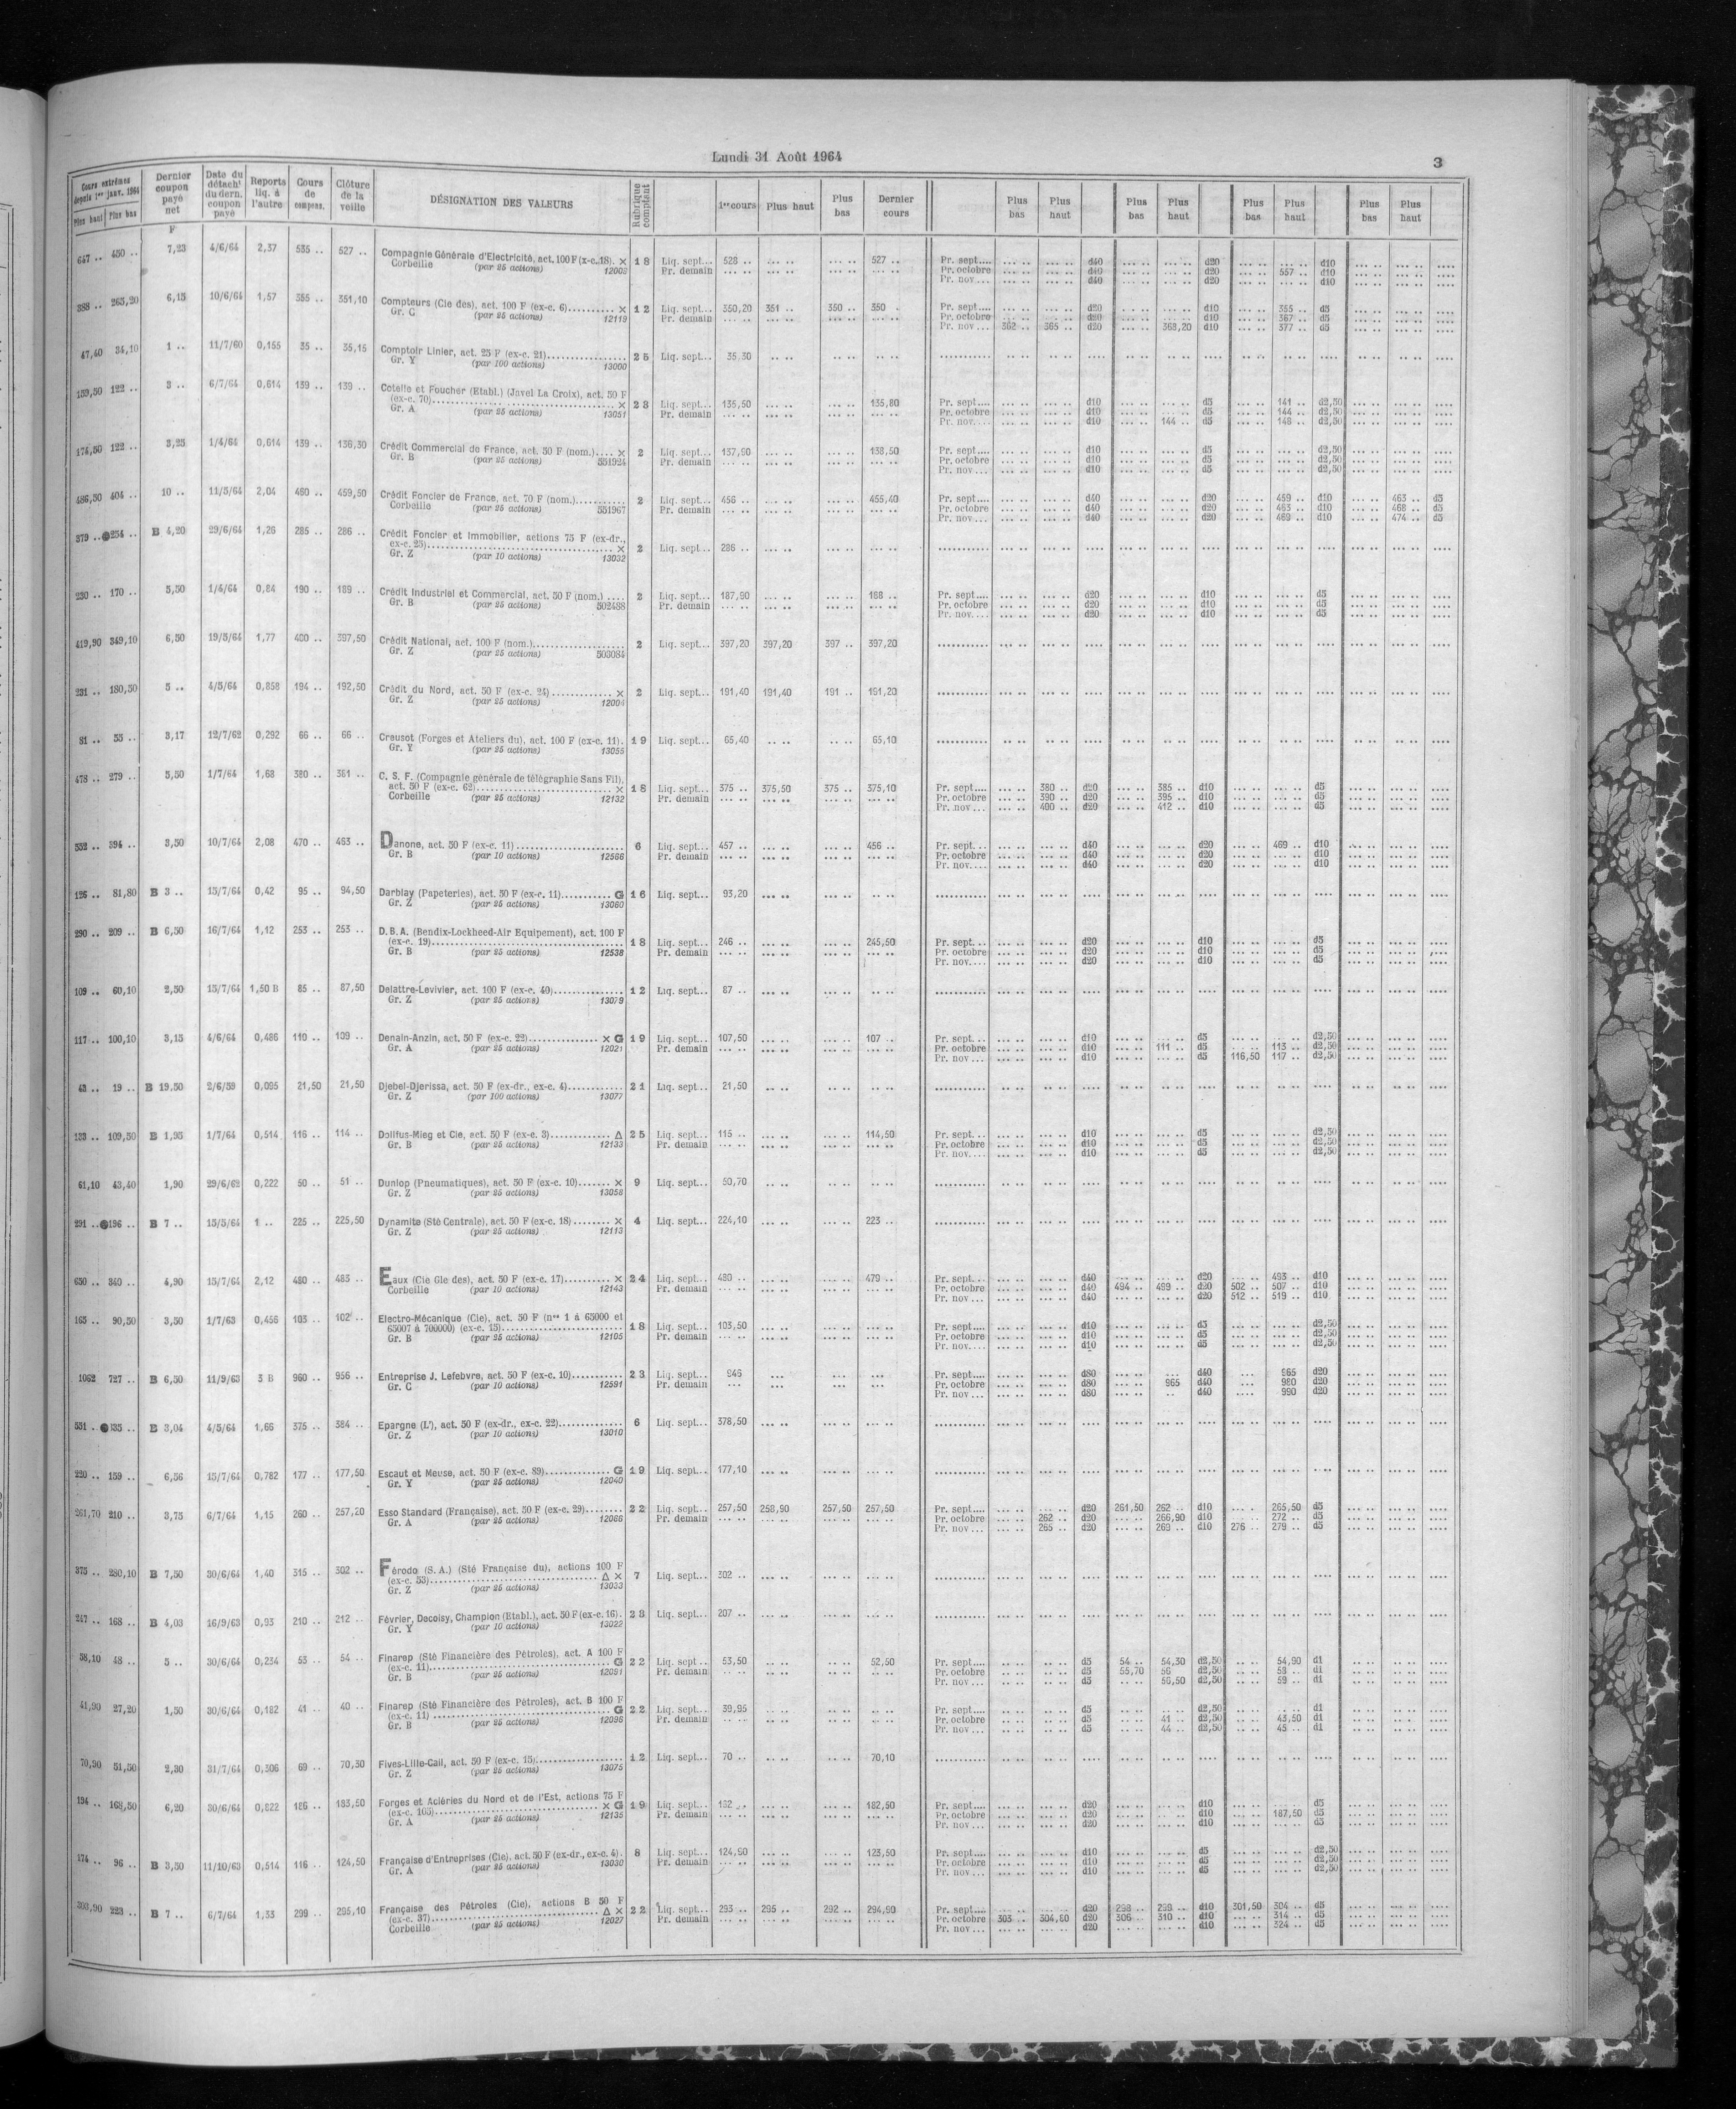 Lundi 31 Août 1964
3
Cours extrêmes depuis 1er janv. 1964 Plus haut Plus bas | Dernier coupon payé net | Date du détacht du dern. coupon payé | Reports liq. à l'autre | Cours de compens. | Clôture de la veille | DÉSIGNATION DES VALEURS | Rubrique comptant | 1er cours | Plus haut | Plus bas | Dernier cours | Plus bas | Plus haut | Plus bas | Plus haut | Plus bas | Plus haut | Plus bas | Plus haut
F
647 .. 450 .. 7,23 4/6/64 2,37 535 .. 527 .. Compagnie Générale d'Electricité, act. 100 F (x-c. 18). × 18 Liq. sept... 528 .. 527 .. Pr. sept.... d40 d20 d10
Corbeille (par 25 actions) 12002 Pr. demain Pr. octobre d40 d20 557 .. d10
Pr. nov... d40 d20 d10
388 .. 263,20 6,15 10/6/64 1,57 355 .. 351,10 Compteurs (Cie des), act. 100 F (ex-c. 6).......... × 12 Liq. sept... 350,20 351 .. 350 .. 350 .. Pr. sept.... d20 d10 355 .. d5
Gr. C (par 25 actions) 12119 Pr. demain Pr. octobre d20 d10 367 .. d5
Pr. nov... 362 .. 365 .. d20 368,20 d10 377 .. d5
47,40 34,10 1 .. 11/7/60 0,155 35 .. 35,15 Comptoir Linier, act. 25 F (ex-c. 21)................ 25 Liq. sept... 35,30
Gr. Y (par 100 actions) 13000
159,50 122 .. 3 .. 6/7/64 0,614 139 .. 139 .. Cotelle et Foucher (Etabl.) (Javel La Croix), act. 50 F
(ex-c. 70).......... × 23 Liq. sept... 135,50 135,80 Pr. sept.... d10 d5 141 .. d2,50
Gr. A (par 25 actions) 13051 Pr. demain Pr. octobre d10 d5 144 .. d2,50
Pr. nov.... d10 144 .. d5 148 .. d2,50
174,50 122 .. 3,25 1/4/64 0,614 139 .. 136,30 Crédit Commercial de France, act. 50 F (nom.).... × 2 Liq. sept... 137,90 138,50 Pr. sept.... d10 d5 d2,50
Gr. B (par 25 actions) 551924 Pr. demain Pr. octobre d10 d5 d2,50
Pr. nov... d10 d5 d2,50
486,50 404 .. 10 .. 11/5/64 2,04 460 .. 459,50 Crédit Foncier de France, act. 70 F (nom.).......... 2 Liq. sept... 456 .. 455,40 Pr. sept.... d40 d20 459 .. d10 463 .. d5
Corbeille (par 25 actions) 551967 Pr. demain Pr. octobre d40 d20 463 .. d10 468 .. d5
Pr. nov... d40 d20 469 .. d10 474 .. d5
379 .. ●254 .. B 4,20 29/6/64 1,26 285 .. 286 .. Crédit Foncier et Immobilier, actions 75 F (ex-dr.,
ex-c. 25).......... × 2 Liq. sept... 286 ..
Gr. Z (par 10 actions) 13032
230 .. 170 .. 5,50 1/4/64 0,84 190 .. 189 .. Crédit Industriel et Commercial, act. 50 F (nom.) .... 2 Liq. sept... 187,90 188 .. Pr. sept.... d20 d10 d5
Gr. B (par 25 actions) 502488 Pr. demain Pr. octobre d20 d10 d5
Pr. nov... d20 d10 d5
419,90 349,10 6,50 19/5/64 1,77 400 .. 397,50 Crédit National, act. 100 F (nom.).......... 2 Liq. sept... 397,20 397,20 397 .. 397,20
Gr. Z (par 25 actions) 503084
231 .. 180,50 5 .. 4/5/64 0,858 194 .. 192,50 Crédit du Nord, act. 50 F (ex-c. 24).......... × 2 Liq. sept... 191,40 191,40 191 .. 191,20
Gr. Z (par 25 actions) 12004
81 .. 55 .. 3,17 12/7/62 0,292 66 .. 66 .. Creusot (Forges et Ateliers du), act. 100 F (ex-c. 11). 19 Liq. sept... 65,40 65,10
Gr. Y (par 25 actions) 13055
478 .. 279 .. 5,50 1/7/64 1,68 380 .. 381 .. C. S. F. (Compagnie générale de télégraphie Sans Fil),
act. 50 F (ex-c. 62).......... × 18 Liq. sept... 375 .. 375,50 375 .. 375,10 Pr. sept.... 380 .. d20 385 .. d10 d5
Corbeille (par 25 actions) 12132 Pr. demain Pr. octobre 390 .. d20 395 .. d10 d5
Pr. nov... 400 .. d20 412 .. d10 d5
552 .. 394 .. 3,50 10/7/64 2,08 470 .. 463 .. Danone, act. 50 F (ex-c. 11).......... 6 Liq. sept... 457 .. 456 .. Pr. sept... d40 d20 469 .. d10
Gr. B (par 10 actions) 12566 Pr. demain Pr. octobre d40 d20 d10
Pr. nov.... d40 d20 d10
126 .. 81,80 B 3 .. 15/7/64 0,42 95 .. 94,50 Darblay (Papeteries), act. 50 F (ex-c. 11).......... G 16 Liq. sept... 93,20
Gr. Z (par 25 actions) 13060
290 .. 209 .. B 6,50 16/7/64 1,12 253 .. 253 .. D.B.A. (Bendix-Lockheed-Air Equipement), act. 100 F
(ex-c. 19).......... 18 Liq. sept... 246 .. 245,50 Pr. sept... d20 d10 d5
Gr. B (par 25 actions) 12538 Pr. demain Pr. octobre d20 d10 d5
Pr. nov.... d20 d10 d5
109 .. 60,10 2,50 15/7/64 1,50 B 85 .. 87,50 Delattre-Levivier, act. 100 F (ex-c. 40).......... 12 Liq. sept... 87 ..
Gr. Z (par 25 actions) 13079
117 .. 100,10 3,15 4/6/64 0,486 110 .. 109 .. Denain-Anzin, act. 50 F (ex-c. 22).......... × G 19 Liq. sept... 107,50 107 .. Pr. sept... d10 d5 d2,50
Gr. A (par 25 actions) 12021 Pr. demain Pr. octobre d10 111 .. d5 113 .. d2,50
Pr. nov... d10 d5 116,50 117 .. d2,50
42 .. 19 .. B 19,50 2/6/59 0,095 21,50 21,50 Djebel-Djerissa, act. 50 F (ex-dr., ex-c. 4).......... 21 Liq. sept... 21,50
Gr. Z (par 100 actions) 13077
133 .. 109,50 B 1,95 1/7/64 0,514 116 .. 114 .. Dollfus-Mieg et Cie, act. 50 F (ex-c. 3).......... Δ 25 Liq. sept... 115 .. 114,50 Pr. sept... d10 d5 d2,50
Gr. B (par 25 actions) 12133 Pr. demain Pr. octobre d10 d5 d2,50
Pr. nov.... d10 d5 d2,50
61,10 43,40 1,90 29/6/62 0,222 50 .. 51 .. Dunlop (Pneumatiques), act. 50 F (ex-c. 10)....... × 9 Liq. sept... 50,70
Gr. Z (par 25 actions) 13058
291 .. ●196 .. B 7 .. 15/5/64 1 .. 225 .. 225,50 Dynamite (Sté Centrale), act. 50 F (ex-c. 18) ........ × 4 Liq. sept... 224,10 223 ..
Gr. Z (par 25 actions) 12113
650 .. 340 .. 4,90 15/7/64 2,12 480 .. 483 .. Eaux (Cie Gle des), act. 50 F (ex-c. 17).......... × 24 Liq. sept... 480 .. 479 .. Pr. sept... d40 d20 493 .. d10
Corbeille (par 10 actions) 12143 Pr. demain Pr. octobre d40 494 .. 499 .. d20 502 .. 507 .. d10
Pr. nov... d40 d20 512 .. 519 .. d10
165 .. 90,50 3,50 1/7/63 0,456 103 .. 102 .. Electro-Mécanique (Cie), act. 50 F (nos 1 à 65000 et
65007 à 700000) (ex-c. 15).......... 18 Liq. sept... 103,50 Pr. sept.... d10 d5 d2,50
Gr. B (par 25 actions) 12105 Pr. demain Pr. octobre d10 d5 d2,50
Pr. nov.... d10 d5 d2,50
1062 727 .. B 6,50 11/9/63 3 B 960 .. 956 .. Entreprise J. Lefebvre, act. 50 F (ex-c. 10).......... 23 Liq. sept... 946 Pr. sept.... d80 d40 965 d20
Gr. C (par 10 actions) 12591 Pr. demain Pr. octobre d80 965 d40 980 d20
Pr. nov... d80 d40 990 d20
B 3,04 4/5/64 1,66 375 .. 384 .. Epargne (L'), act. 50 F (ex-dr., ex-c. 22).......... 6 Liq. sept... 378,50
Gr. Z (par 10 actions) 13010
220 .. 159 .. 6,56 15/7/64 0,782 177 .. 177,50 Escaut et Meuse, act. 50 F (ex-c. 89).......... G 19 Liq. sept... 177,10
Gr. Y (par 25 actions) 12040
261,70 210 .. 3,75 6/7/64 1,15 260 .. 257,20 Esso Standard (Française), act. 50 F (ex-c. 29)........ 22 Liq. sept... 257,50 258,90 257,50 257,50 Pr. sept.... d20 261,50 262 .. d10 265,50 d5
Gr. A (par 25 actions) 12068 Pr. demain Pr. octobre 262 .. d20 266,90 d10 272 .. d5
Pr. nov... 265 .. d20 269 .. d10 276 .. 279 .. d5
375 .. 280,10 B 7,50 30/6/64 1,40 315 .. 302 .. Férodo (S.A.) (Sté Française du), actions 100 F
(ex-c. 53).......... Δ × 7 Liq. sept... 302 ..
Gr. Z (par 25 actions) 13033
247 .. 168 .. B 4,03 16/9/63 0,93 210 .. 212 .. Février, Decoisy, Champion (Etabl.), act. 50 F (ex-c. 16). 23 Liq. sept... 207 ..
Gr. Y (par 10 actions) 13022
58,10 48 .. 5 .. 30/6/64 0,234 53 .. 54 .. Finarep (Sté Financière des Pétroles), act. A 100 F
(ex-c. 11).......... G 22 Liq. sept... 53,50 52,50 Pr. sept.... d5 54 .. 54,30 d2,50 54,90 d1
Gr. B (par 25 actions) 12091 Pr. demain Pr. octobre d5 55,70 56 d2,50 58 .. d1
Pr. nov... d5 56,50 d2,50 59 .. d1
41,90 27,20 1,50 30/6/64 0,182 41 .. 40 .. Finarep (Sté Financière des Pétroles), act. B 100 F
(ex-c. 11) .......... G 22 Liq. sept... 39,95 Pr. sept.... d5 d2,50 d1
Gr. B (par 25 actions) 12096 Pr. demain Pr. octobre d5 41 .. d2,50 43,50 d1
Pr. nov... d5 44 .. d2,50 45 .. d1
70,90 51,50 2,30 31/7/64 0,306 69 .. 70,30 Fives-Lille-Cail, act. 50 F (ex-c. 15).......... 12 Liq. sept... 70 .. 70,10
Gr. Z (par 25 actions) 13075
194 .. 168,50 6,20 30/6/64 0,822 186 .. 183,50 Forges et Aciéries du Nord et de l'Est, actions 75 F
(ex-c. 105).......... × G 19 Liq. sept... 182 .. 182,50 Pr. sept.... d20 d10 d5
Gr. A (par 25 actions) 12135 Pr. demain Pr. octobre d20 d10 187,50 d5
Pr. nov... d20 d10 d5
174 .. 96 .. B 3,50 11/10/63 0,514 116 .. 124,50 Française d'Entreprises (Cie), act. 50 F (ex-dr., ex-c. 4). 8 Liq. sept... 124,90 123,50 Pr. sept.... d10 d5 d2,50
Gr. A (par 25 actions) 13030 Pr. demain Pr. octobre d10 d5 d2,50
Pr. nov... d10 d5 d2,50
223 .. B 7 .. 6/7/64 1,33 299 .. 295,10 Française des Pétroles (Cie), actions B 50 F
(ex-c. 37).......... Δ × 22 Liq. sept... 293 .. 295 .. 292 .. 294,90 Pr. sept.... d20 298 .. 299 .. d10 301,50 304 .. d5
Corbeille (par 25 actions) 12027 Pr. demain Pr. octobre 303 .. 304,80 d20 306 .. 310 .. d10 314 .. d5
Pr. nov... d20 d10 324 .. d5